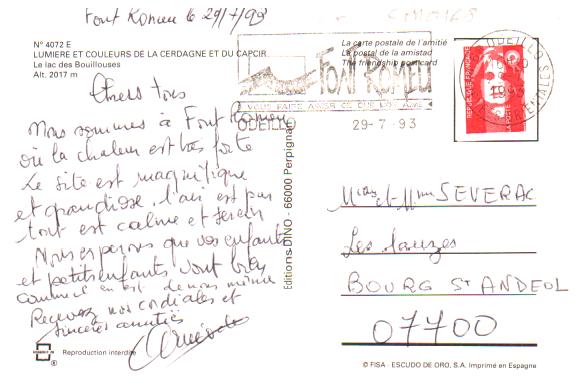 Font Romeu le 29/7/93
N° 4072 E
LUMIERE ET COULEURS DE LA CERDAGNE ET DU CAPCIR
Le lac des Bouillouses
Alt. 2017 m
Chers tous
Nous sommes à Font Romeu
où la chaleur est très forte
Le site est magnifique
et grandiose, l'air est pur
tout est calme et serein
Nous espérons que vos enfants
et petits enfants vont bien
comme il en est de nous même
Recevez nos cordiales et
sincères amitiés
Reproduction interdite
Editions DINO - 66000 Perpignan
La carte postale de l'amitié
La postal de la amistad
The friendship postcard
FONT ROMEU
VOUS FAIRE AIMER CE QUE L'ON AIME
ODEILLO
29-7-93
ODEILLO
1993
REPUBLIQUE FRANÇAISE
LA POSTE
Mr et Mme SEVERAC
Les
BOURG ST ANDEOL
07700
© FISA - ESCUDO DE ORO, S.A. Imprimé en Espagne